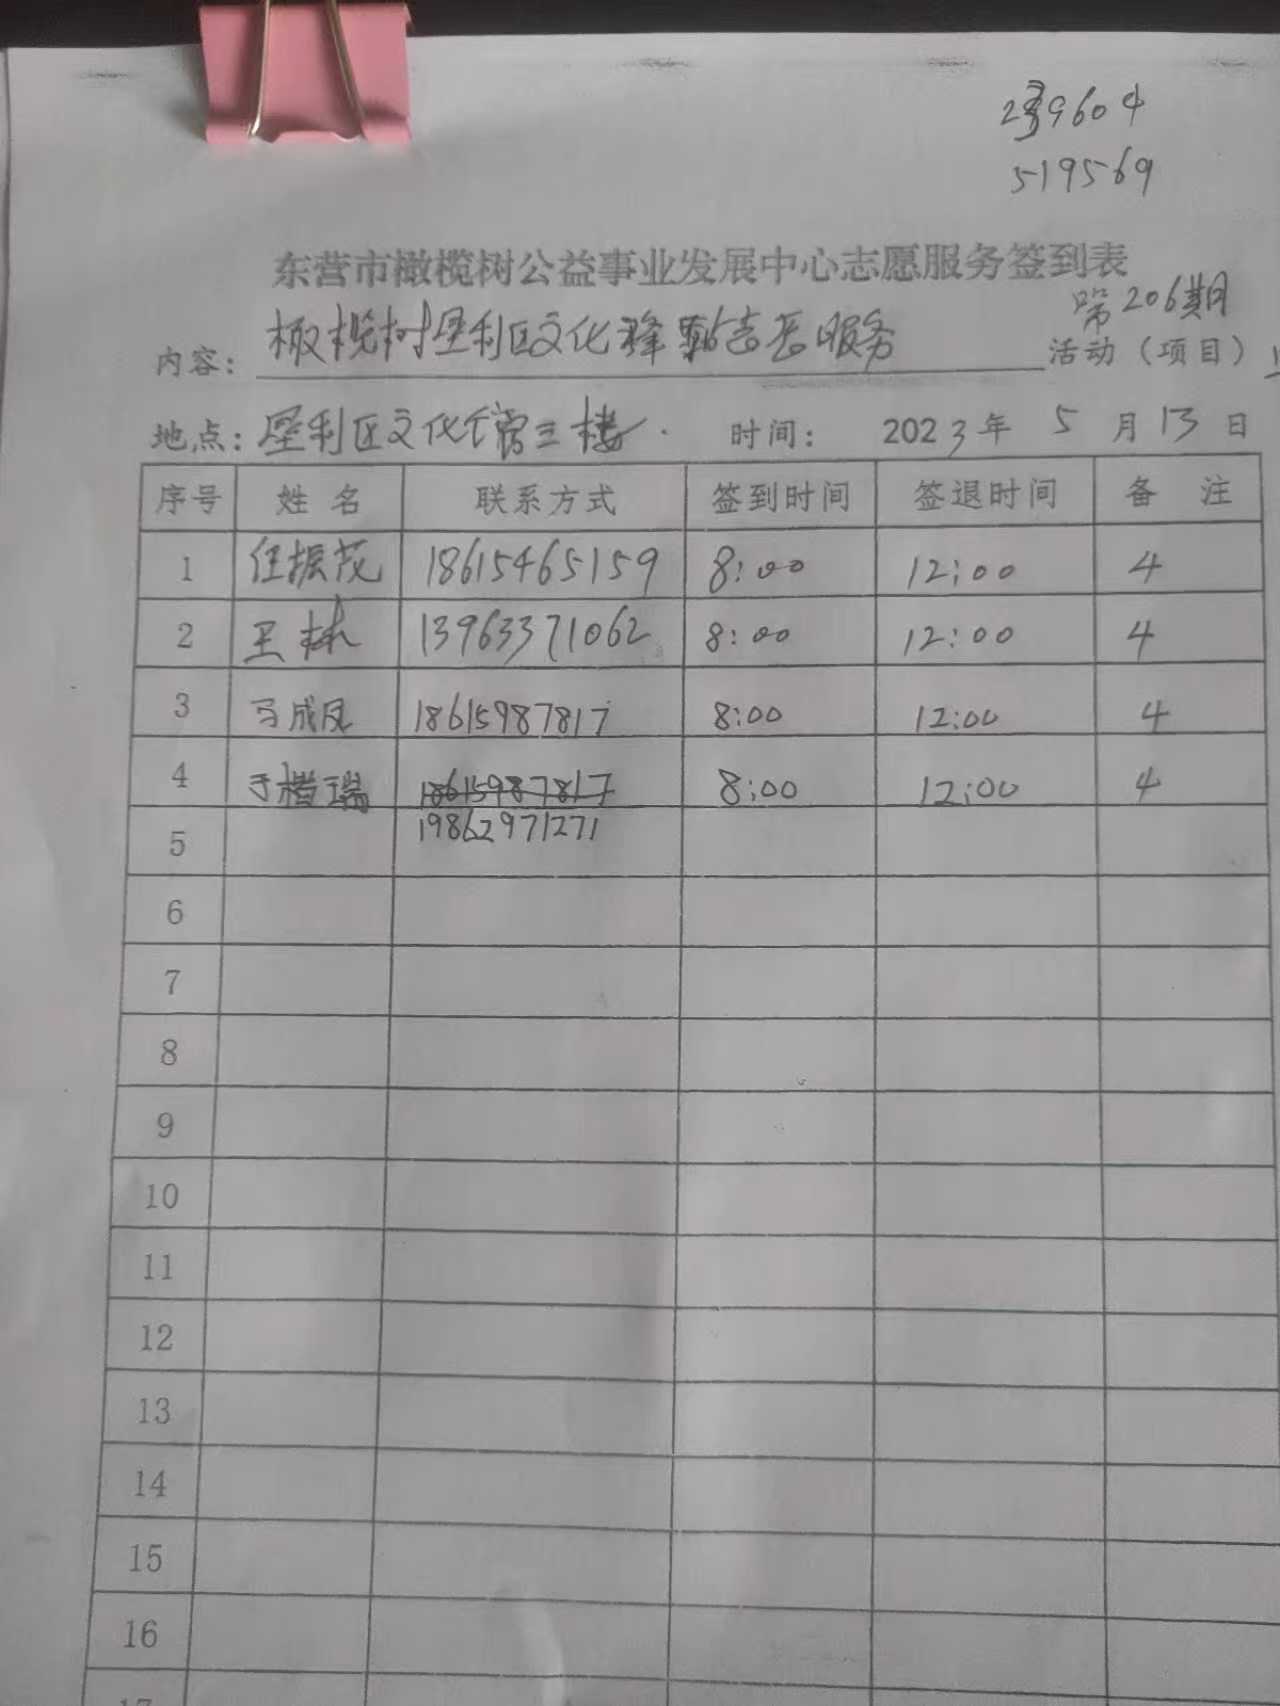 9604
519569
东营市橄榄树公益事业发展中心志愿服务签到表
第206期
内容: 橄榄树垦利区文化驿站志愿服务 活动（项目）
地点: 垦利区文化馆三楼. 时间: 2023年 5 月 13 日
序号 姓 名 联系方式 签到时间 签退时间 备 注
1 任振茂 18615465159 8:00 12:00 4
2 王林 13963371062 8:00 12:00 4
3 马成凤 18615987817 8:00 12:00 4
4 于楷瑞 18615987817 8:00 12:00 4
5 19862971271
6
7
8
9
10
11
12
13
14
15
16
17